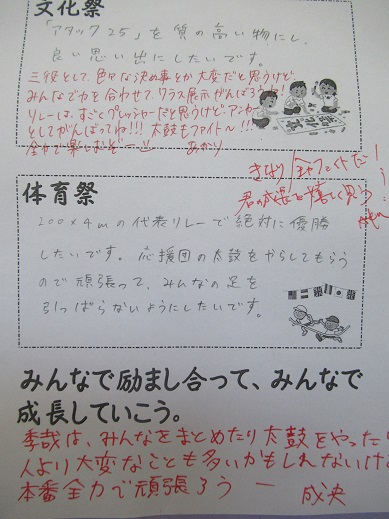 文化祭
「アタック25」を質の高い物にし、
良い思い出にしたいです。
三役として、色々な決め事とか大変だと思うけど
みんなで力を合わせて、クラス展示がんばろうね!
リレーは、すごくプレッシャーだと思うけどアンカー
としてがんばってね!!! 太鼓もファイトー!!!
全力で楽しむぞー
あかり
体育祭
200×4mの代表リレーで絶対に優勝
したいです。応援団の太鼓をやらしてもらう
ので頑張って、みんなの足を
引っぱらないようにしたいです。
君の成長を嬉しく思う
みんなで励まし合って、みんなで
成長していこう。
季哉は、みんなをまとめたり太鼓をやったり
人より大変なことも多いかもしれないけど
本番全力で頑張ろうー
成央